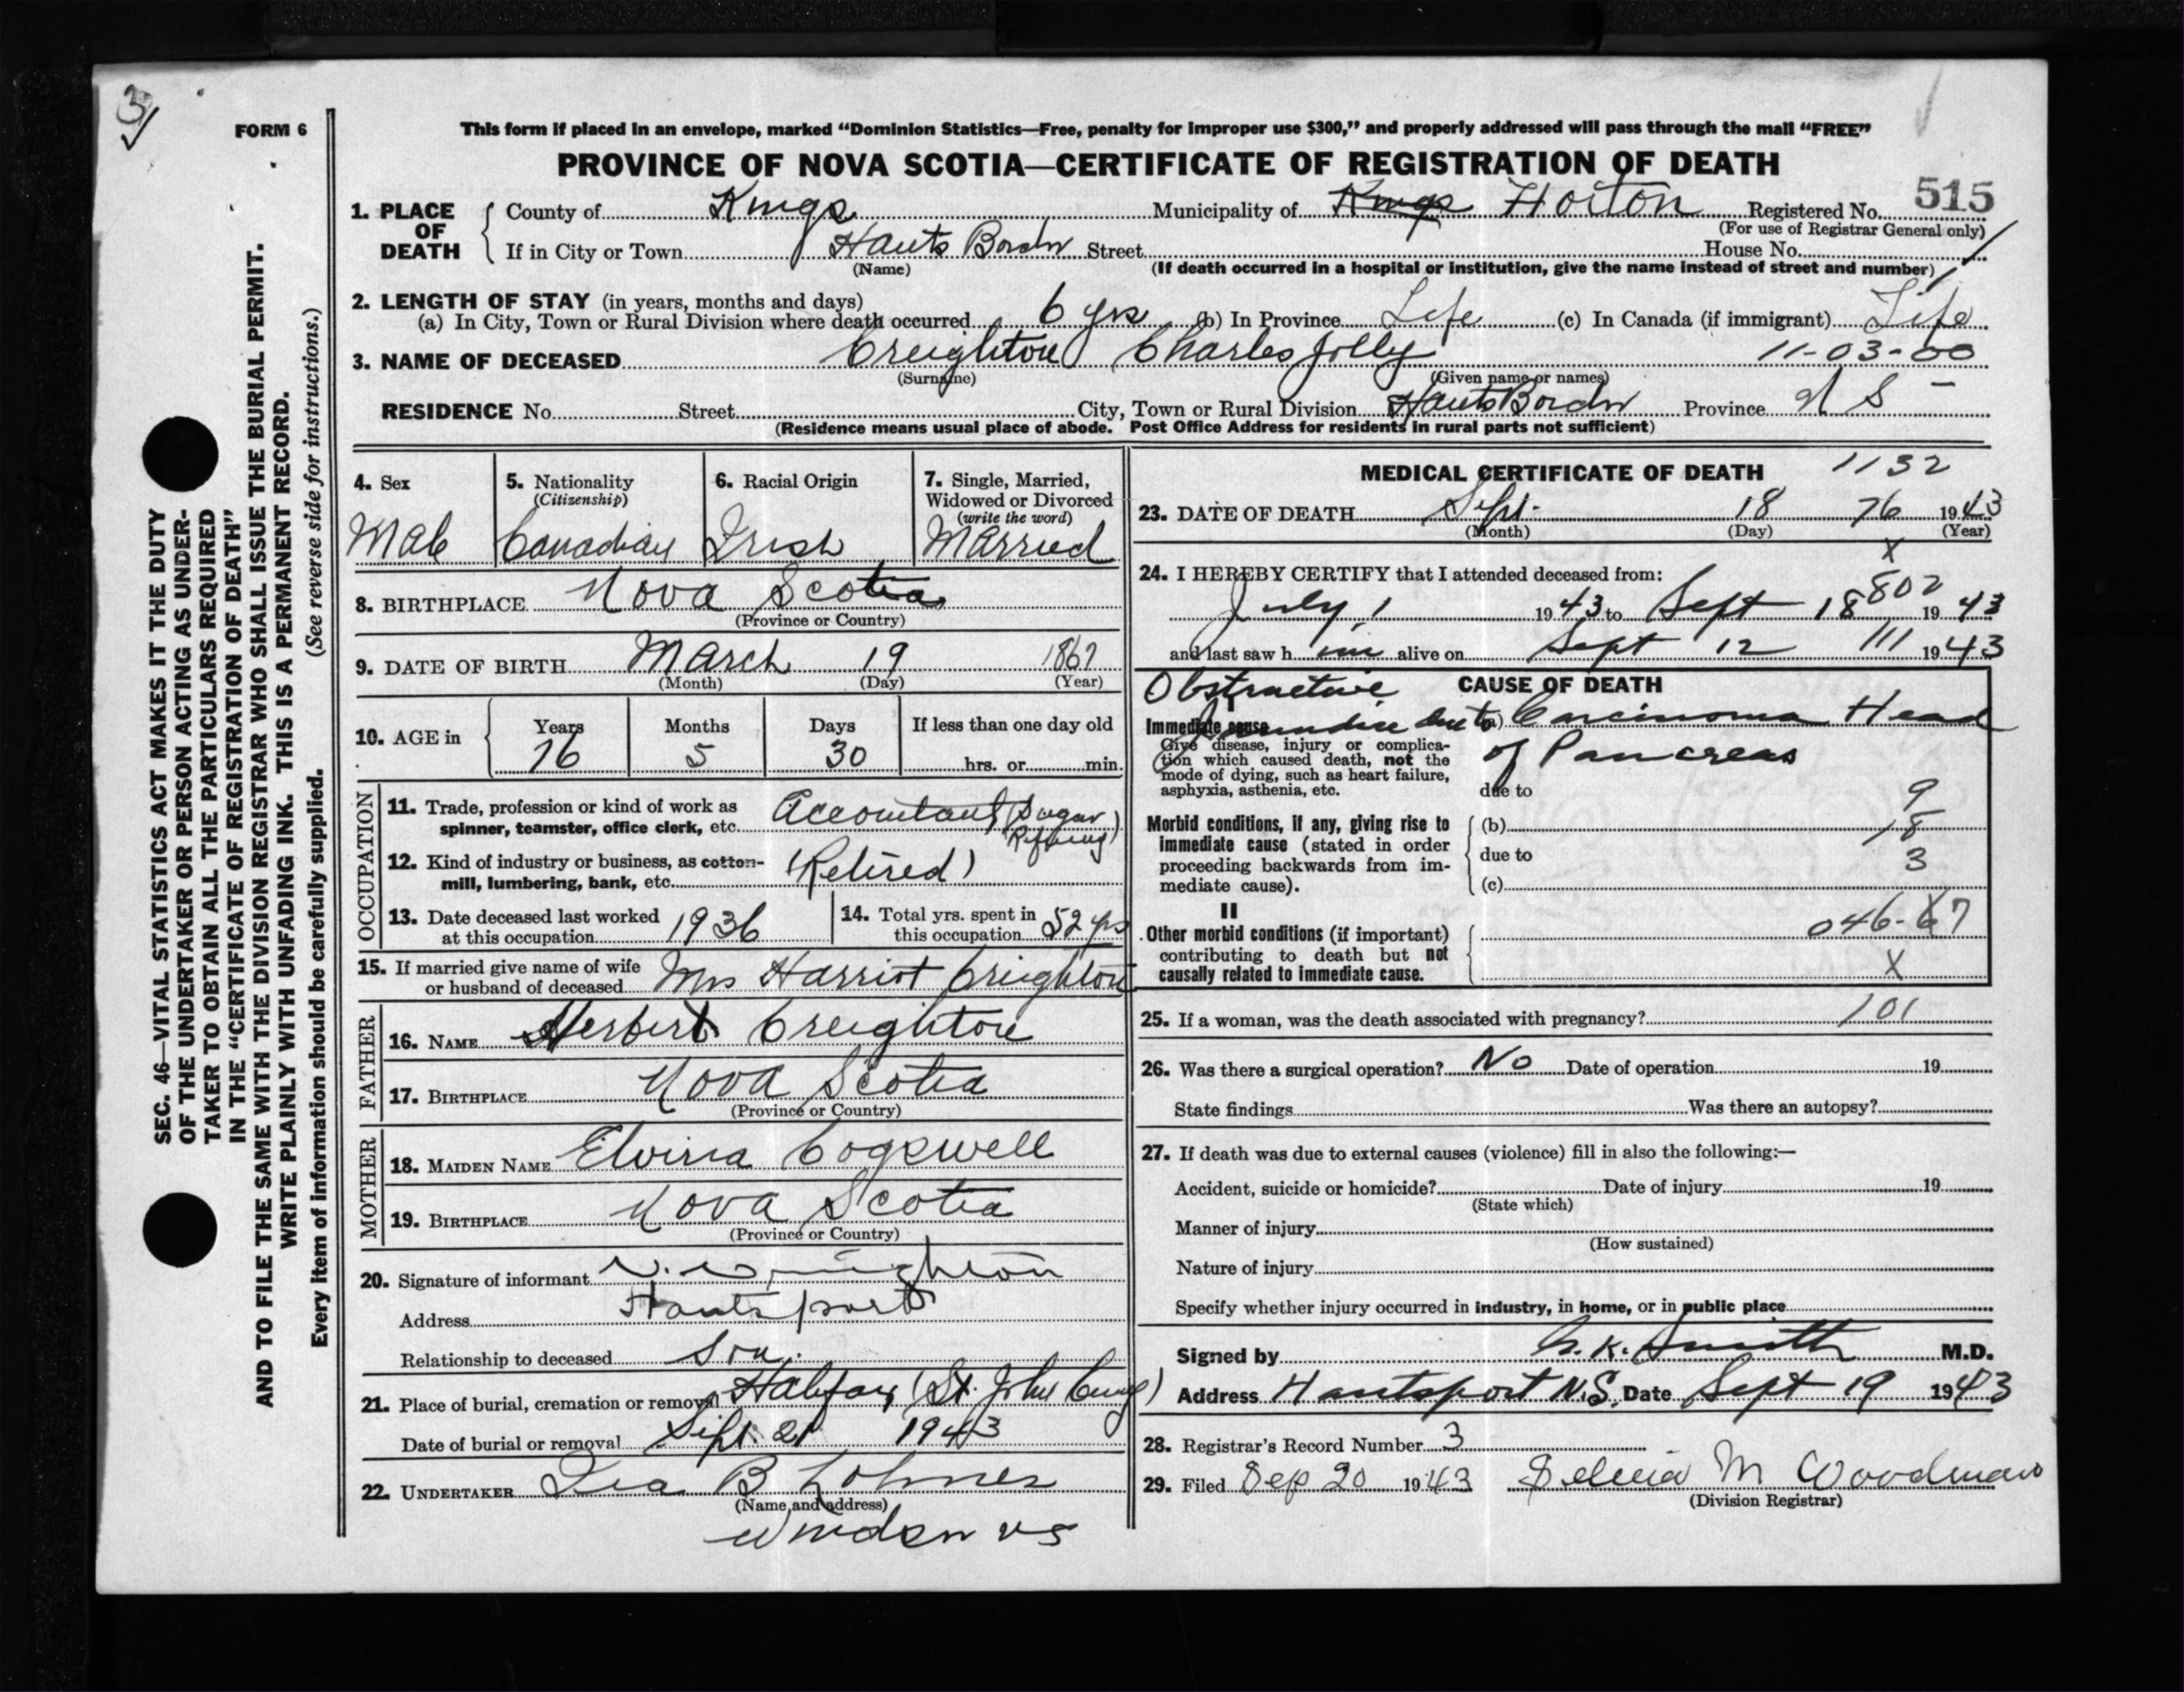 3
FORM 6
This form if placed in an envelope, marked “Dominion Statistics—Free, penalty for improper use $300,” and properly addressed will pass through the mail “FREE”
PROVINCE OF NOVA SCOTIA—CERTIFICATE OF REGISTRATION OF DEATH
515
1. PLACE OF DEATH
County of Kings Municipality of Kings Horton Registered No.
(For use of Registrar General only)
If in City or Town Hants Border Street House No.
(Name) (If death occurred in a hospital or institution, give the name instead of street and number)
2. LENGTH OF STAY (in years, months and days)
(a) In City, Town or Rural Division where death occurred 6 yrs (b) In Province Life (c) In Canada (if immigrant) Life
3. NAME OF DECEASED Creighton Charles Jolly 11-03-00
(Surname) (Given name or names)
RESIDENCE No. Street City, Town or Rural Division Hants Border Province N S –
(Residence means usual place of abode. Post Office Address for residents in rural parts not sufficient)
4. Sex
Male
5. Nationality
(Citizenship)
Canadian
6. Racial Origin
Irish
7. Single, Married,
Widowed or Divorced
(write the word)
Married
8. BIRTHPLACE Nova Scotia
(Province or Country)
9. DATE OF BIRTH March 19 1867
(Month) (Day) (Year)
10. AGE in
Years Months Days If less than one day old
76 5 30 hrs. or min.
OCCUPATION
11. Trade, profession or kind of work as
spinner, teamster, office clerk, etc. Accountant (Sugar
Refining)
12. Kind of industry or business, as cotton-
mill, lumbering, bank, etc. (Retired)
13. Date deceased last worked
at this occupation 1936
14. Total yrs. spent in
this occupation 52 yrs
15. If married give name of wife
or husband of deceased Mrs Harriot Creighton
FATHER
16. NAME Herbert Creighton
17. BIRTHPLACE Nova Scotia
(Province or Country)
MOTHER
18. MAIDEN NAME Elvira Cogswell
19. BIRTHPLACE Nova Scotia
(Province or Country)
20. Signature of informant Creighton
Address Hantsport
Relationship to deceased Son.
21. Place of burial, cremation or removal Halifax (St. John Cemy)
Date of burial or removal Sept. 21 1943
22. UNDERTAKER Ira B Lohnes
(Name and address)
Windsor NS
MEDICAL CERTIFICATE OF DEATH 1132
23. DATE OF DEATH Sept. 18 76 1943
(Month) (Day) (Year)
x
24. I HEREBY CERTIFY that I attended deceased from:
802
July 1 1943 to Sept 18 1943
and last saw h im alive on Sept 12 111 1943
Obstructive CAUSE OF DEATH
Immediate cause Jaundice due to (a) Carcinoma Head
of Pancreas
Give disease, injury or complica-
tion which caused death, not the
mode of dying, such as heart failure,
asphyxia, asthenia, etc. due to
9
Morbid conditions, if any, giving rise to
immediate cause (stated in order
proceeding backwards from im-
mediate cause).
(b) 18
due to 3
(c)
II
Other morbid conditions (if important)
contributing to death but not
causally related to immediate cause.
046-67
X
25. If a woman, was the death associated with pregnancy? 101
26. Was there a surgical operation? No Date of operation 19
State findings Was there an autopsy?
27. If death was due to external causes (violence) fill in also the following:—
Accident, suicide or homicide? Date of injury 19
(State which)
Manner of injury
(How sustained)
Nature of injury
Specify whether injury occurred in industry, in home, or in public place
Signed by Smith M.D.
Address Hantsport N.S. Date Sept 19 1943
28. Registrar's Record Number 3
29. Filed Sep 20 1943 M Woodman
(Division Registrar)
SEC. 46—VITAL STATISTICS ACT MAKES IT THE DUTY
OF THE UNDERTAKER OR PERSON ACTING AS UNDER-
TAKER TO OBTAIN ALL THE PARTICULARS REQUIRED
IN THE “CERTIFICATE OF REGISTRATION OF DEATH”
AND TO FILE THE SAME WITH THE DIVISION REGISTRAR WHO SHALL ISSUE THE BURIAL PERMIT.
WRITE PLAINLY WITH UNFADING INK. THIS IS A PERMANENT RECORD.
Every item of information should be carefully supplied. (See reverse side for instructions.)